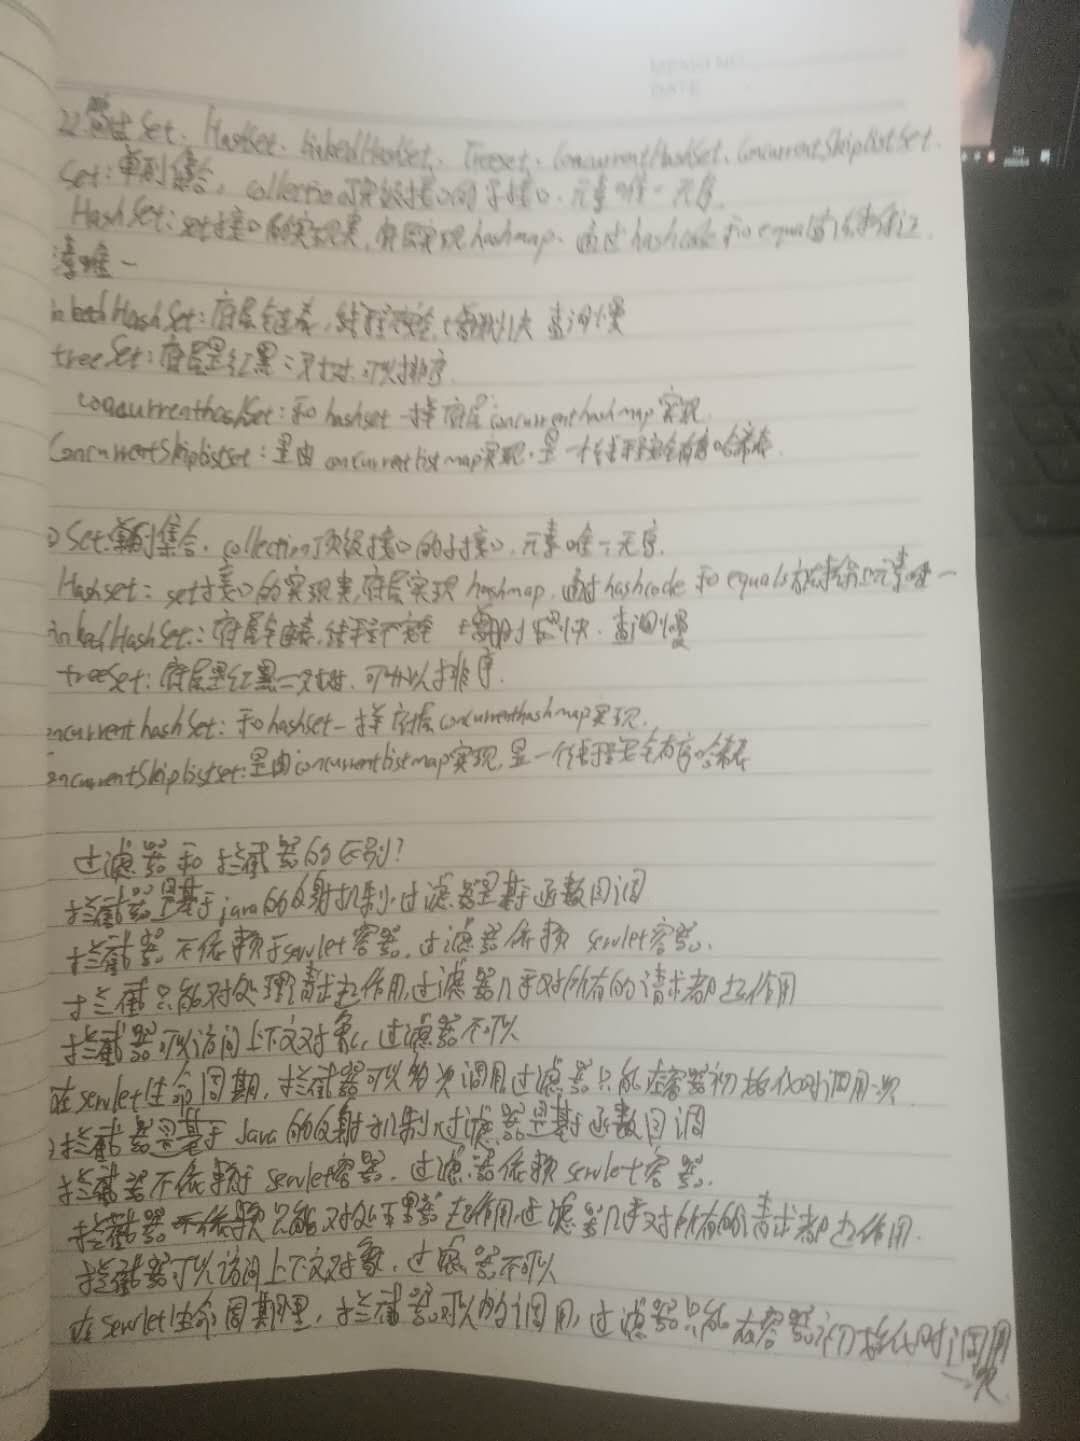 22.简述Set、HashSet、LinkedHashSet、Treeset、ConcurrentHashSet、ConcurrentSkiplistSet.
Set:单列集合, collection顶级接口的子接口.元素唯一无序.
HashSet:set接口的实现类,底层实现hashmap、通过hashcode和equal方法来保证
素唯一
nkedHashSet:底层是链表,线程不安全,增删快 查询慢
treeSet:底层是红黑二叉树.可以排序.
concurrenthashSet:和hashset一样底层concurrenthashmap实现.
ConcurrentSkiplistset:是由concurrentlistmap实现.是一个线程安全有序哈希表.
Set:单列集合.collection顶级接口的子接口.元素唯一无序.
Hashset:set接口的实现类,底层实现hashmap,通过hashcode和equals方法来保证元素唯一
inkedHashSet:底层链表,线程不安全 增删快.查询慢
treeset:底层是红黑二叉树.可以排序.
oncurrenthashSet:和hashset一样底层concurrenthashmap实现.
oncurrentSkiplistset:是由concurrentlistmap实现,是一个线程安全有序哈希表
过滤器和拦截器的区别?
拦截器是基于java的反射机制.过滤器是基于函数回调
拦截器不依赖于servlet容器.过滤器依赖servlet容器.
拦截只能对处理请求起作用,过滤器几乎对所有的请求都起作用
拦截器可以访问上下文对象,过滤器不可以
在servlet生命周期,拦截器可以多次调用过滤器只能在容器初始化时调用一次
拦截器是基于Java的反射机制过滤器是基于函数回调
拦截器不依赖于servlet容器.过滤器依赖servlet容器.
拦截器只能对处理起作用.过滤器几乎对所有的请求都起作用.
拦截器可以访问上下文对象,过滤器不可以
在servlet生命周期里,拦截器可以调用,过滤器只能在容器初始化时调用
一次